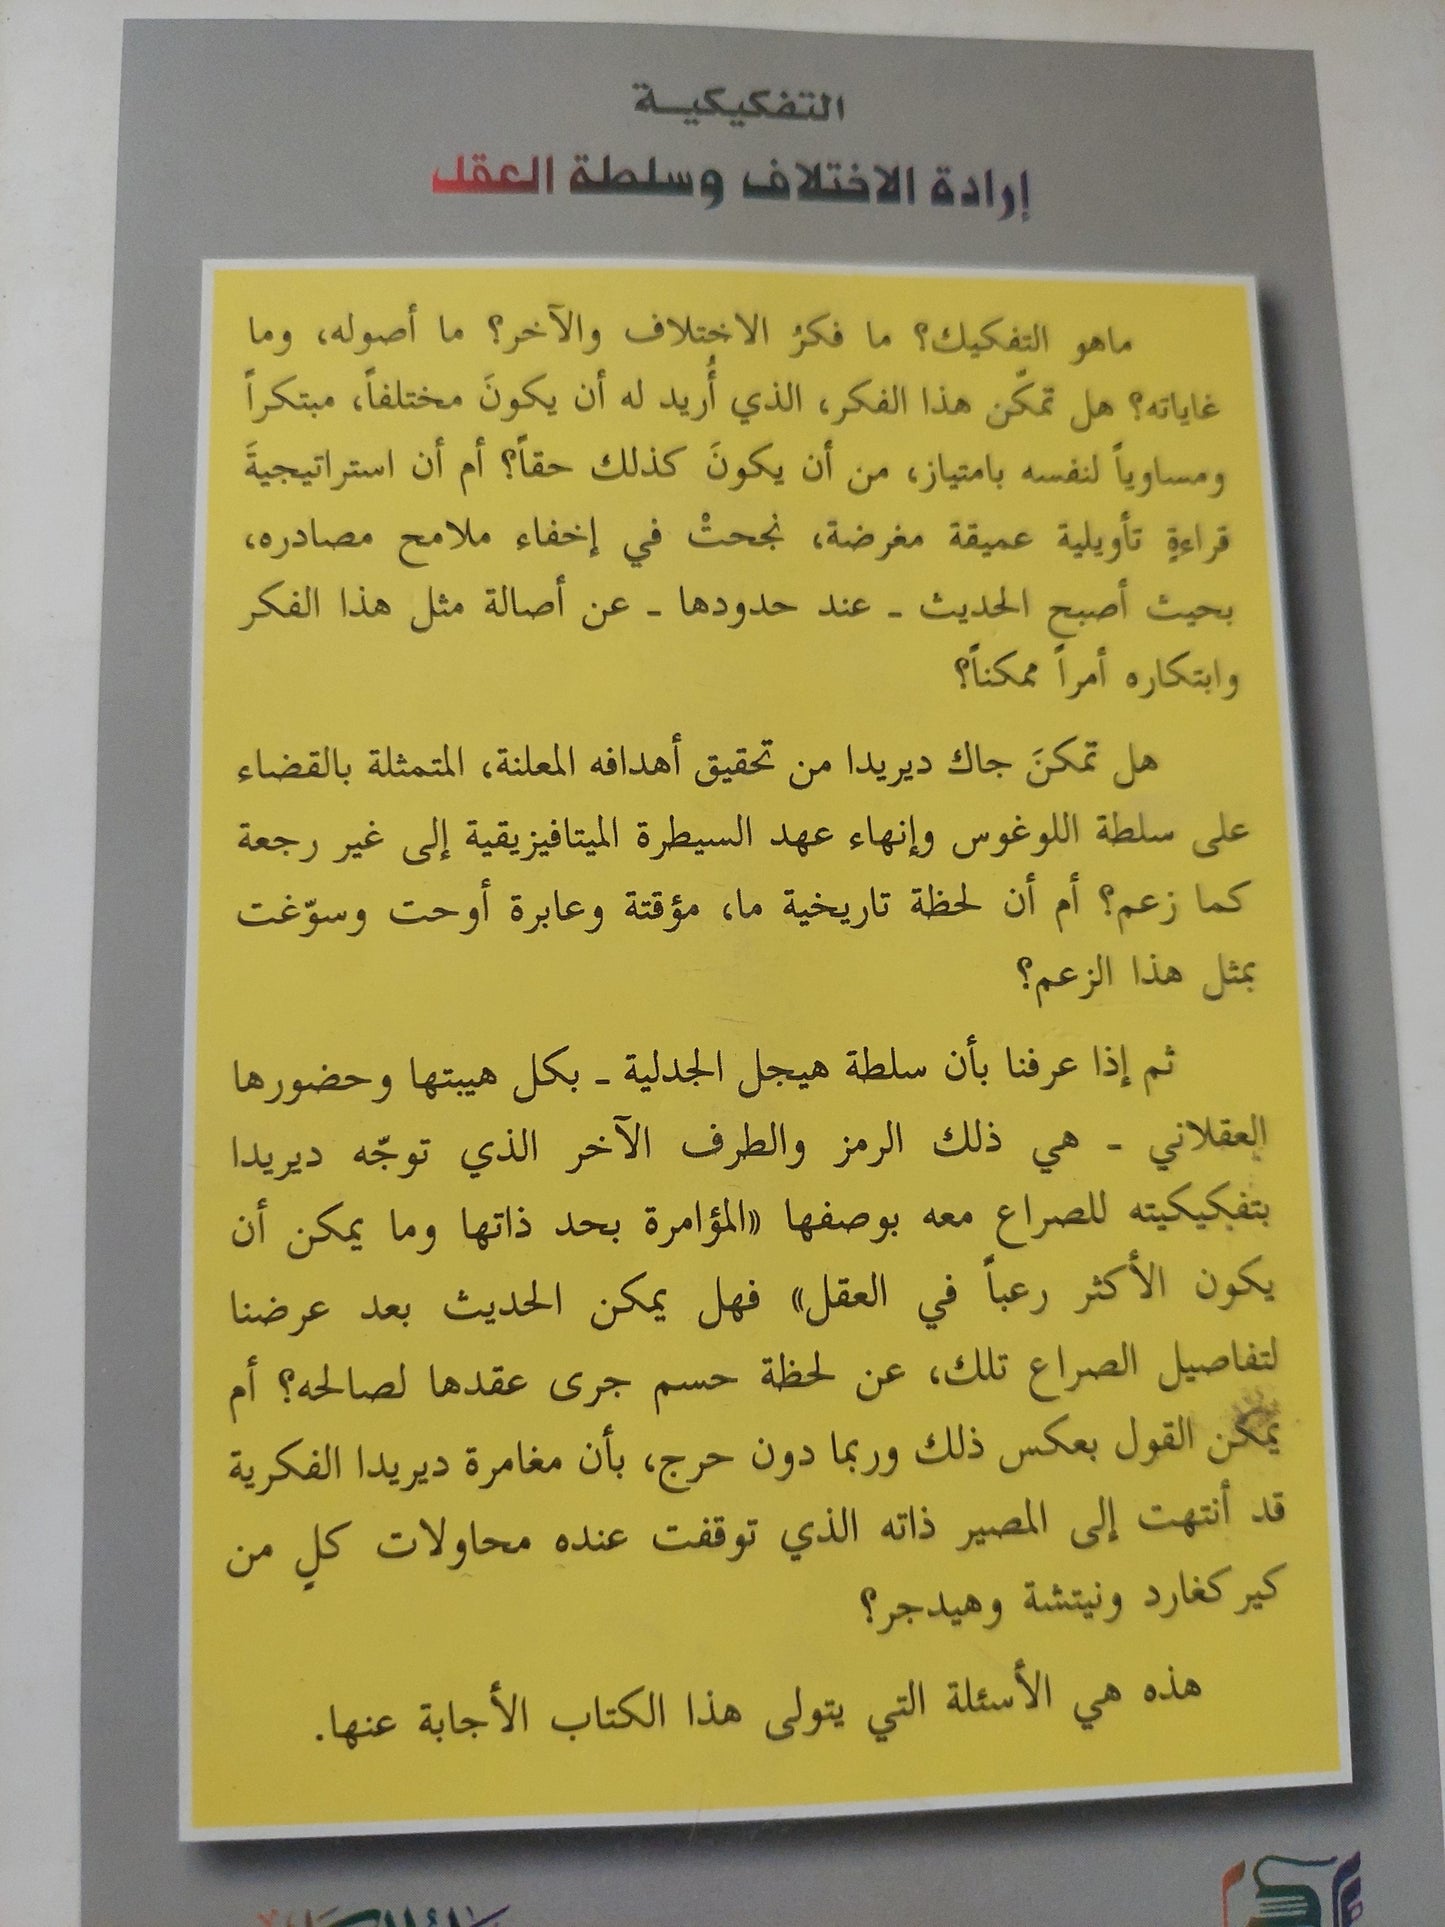 التفكيكيــة
إرادة الاختلاف وسلطة العقل
ماهو التفكيك؟ ما فكرُ الاختلاف والآخر؟ ما أصوله، وما
غاياته؟ هل تمكّن هذا الفكر، الذي أُريد له أن يكونَ مختلفاً، مبتكراً
ومساوياً لنفسه بامتياز، من أن يكونَ كذلك حقاً؟ أم أن استراتيجيةَ
قراءةٍ تأويلية عميقة مغرضة، نجحتْ في إخفاء ملامح مصادره،
بحيث أصبح الحديث ـ عند حدودها ـ عن أصالة مثل هذا الفكر
وابتكاره أمراً ممكناً؟
هل تمكنَ جاك ديريدا من تحقيق أهدافه المعلنة، المتمثلة بالقضاء
على سلطة اللوغوس وإنهاء عهد السيطرة الميتافيزيقية إلى غير رجعة
كما زعم؟ أم أن لحظة تاريخية ما، مؤقتة وعابرة أوحت وسوّغت
بمثل هذا الزعم؟
ثم إذا عرفنا بأن سلطة هيجل الجدلية ـ بكل هيبتها وحضورها
العقلاني ـ هي ذلك الرمز والطرف الآخر الذي توجّه ديريدا
بتفكيكيته للصراع معه بوصفها «المؤامرة بحد ذاتها وما يمكن أن
يكون الأكثر رعباً في العقل» فهل يمكن الحديث بعد عرضنا
لتفاصيل الصراع تلك، عن لحظة حسم جرى عقدها لصالحه؟ أم
يمكن القول بعكس ذلك وربما دون حرج، بأن مغامرة ديريدا الفكرية
قد أنتهت إلى المصير ذاته الذي توقفت عنده محاولات كلٍ من
كيركغارد ونيتشة وهيدجر؟
هذه هي الأسئلة التي يتولى هذا الكتاب الأجابة عنها.